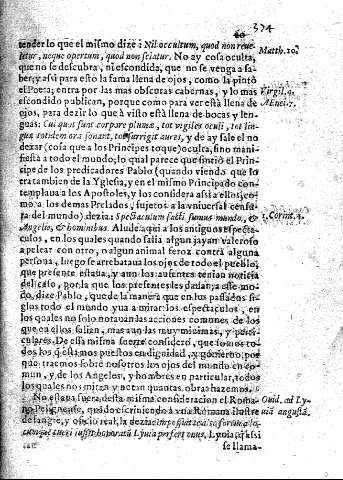 60 374
tender lo que el mismo dize à Nil occultum, quod non reue
letur, neque opertum, quod non sciatur. No ay cosa oculta, Matth. 10.
que no se descubra, ni escondida, que no se venga a sa-
ber, y assi para esto la fama llena de ojos, como la pintò
el Poeta, entra por las mas obscuras cabernas, y lo mas Virgil. 4.
escondido publican, porque como para ver está llena de AEnei. 7.
ojos, para dezir lo que à visto està llena de bocas y len-
guas: Cui quot sunt corpore plumæ, tot vigiles oculi, tot lin
guæ, totidem ora sonant, tot surrigit aures, y de ay sale el no
dezar (cosa que a los Principes toque) oculta, sino mani-
fiesta a todo el mundo; lo qual parece que sintiò el Prin-
cipe de los predicadores Pablo (quando viendo que lo
tratambien de la Yglesia, y en el mismo Principado con-
templaua a los Apostoles, y los considera assi a ellos, co-
mo a los demas Prelados, sujetos a la vniuersal censu
ra del mundo) dezia: Spectaculum facti sumus mundo, & 1. Corint. 4.
Angelis, & hominibus. Alude aqui a los antiguos especta-
culos, en los quales quando salia algun jayan valeroso
a pelear con otro, o algun animal feroz contra alguna
persona, luego se arrebataua los ojos de todo el pueblo,
que presente estaua, y aun los ausentes tenian noticia
del caso, por la que los presentes les dauan; a esse mo-
do, dize Pablo, que de la manera que en los passados si-
glos todo el mundo yua a mirar los espectaculos, en
los quales no solo notauan las acciones comunes de los
que en ellos salian, mas aun las muy minimas, y parti-
culares. De essa misma suerte considerò, que somos to-
dos los q̃ estamos puestos en dignidad, y gouierno, por
que traemos sobre nosotros los ojos del mundo en co-
mun, y de los Angeles, y hombres en particular, todos
los quales nos miran y notan quantas obras hazemos.
No estaua fuera desta misma consideracion el Roma- Ouid. ad Ly-
no Pelignense, quãdo escriuiendo à vna Romana ilustre uiã augustã.
de sangre, y oficio real, la dezia:
honoratũ Lyuia perfert onus, Lyuia
se llama-